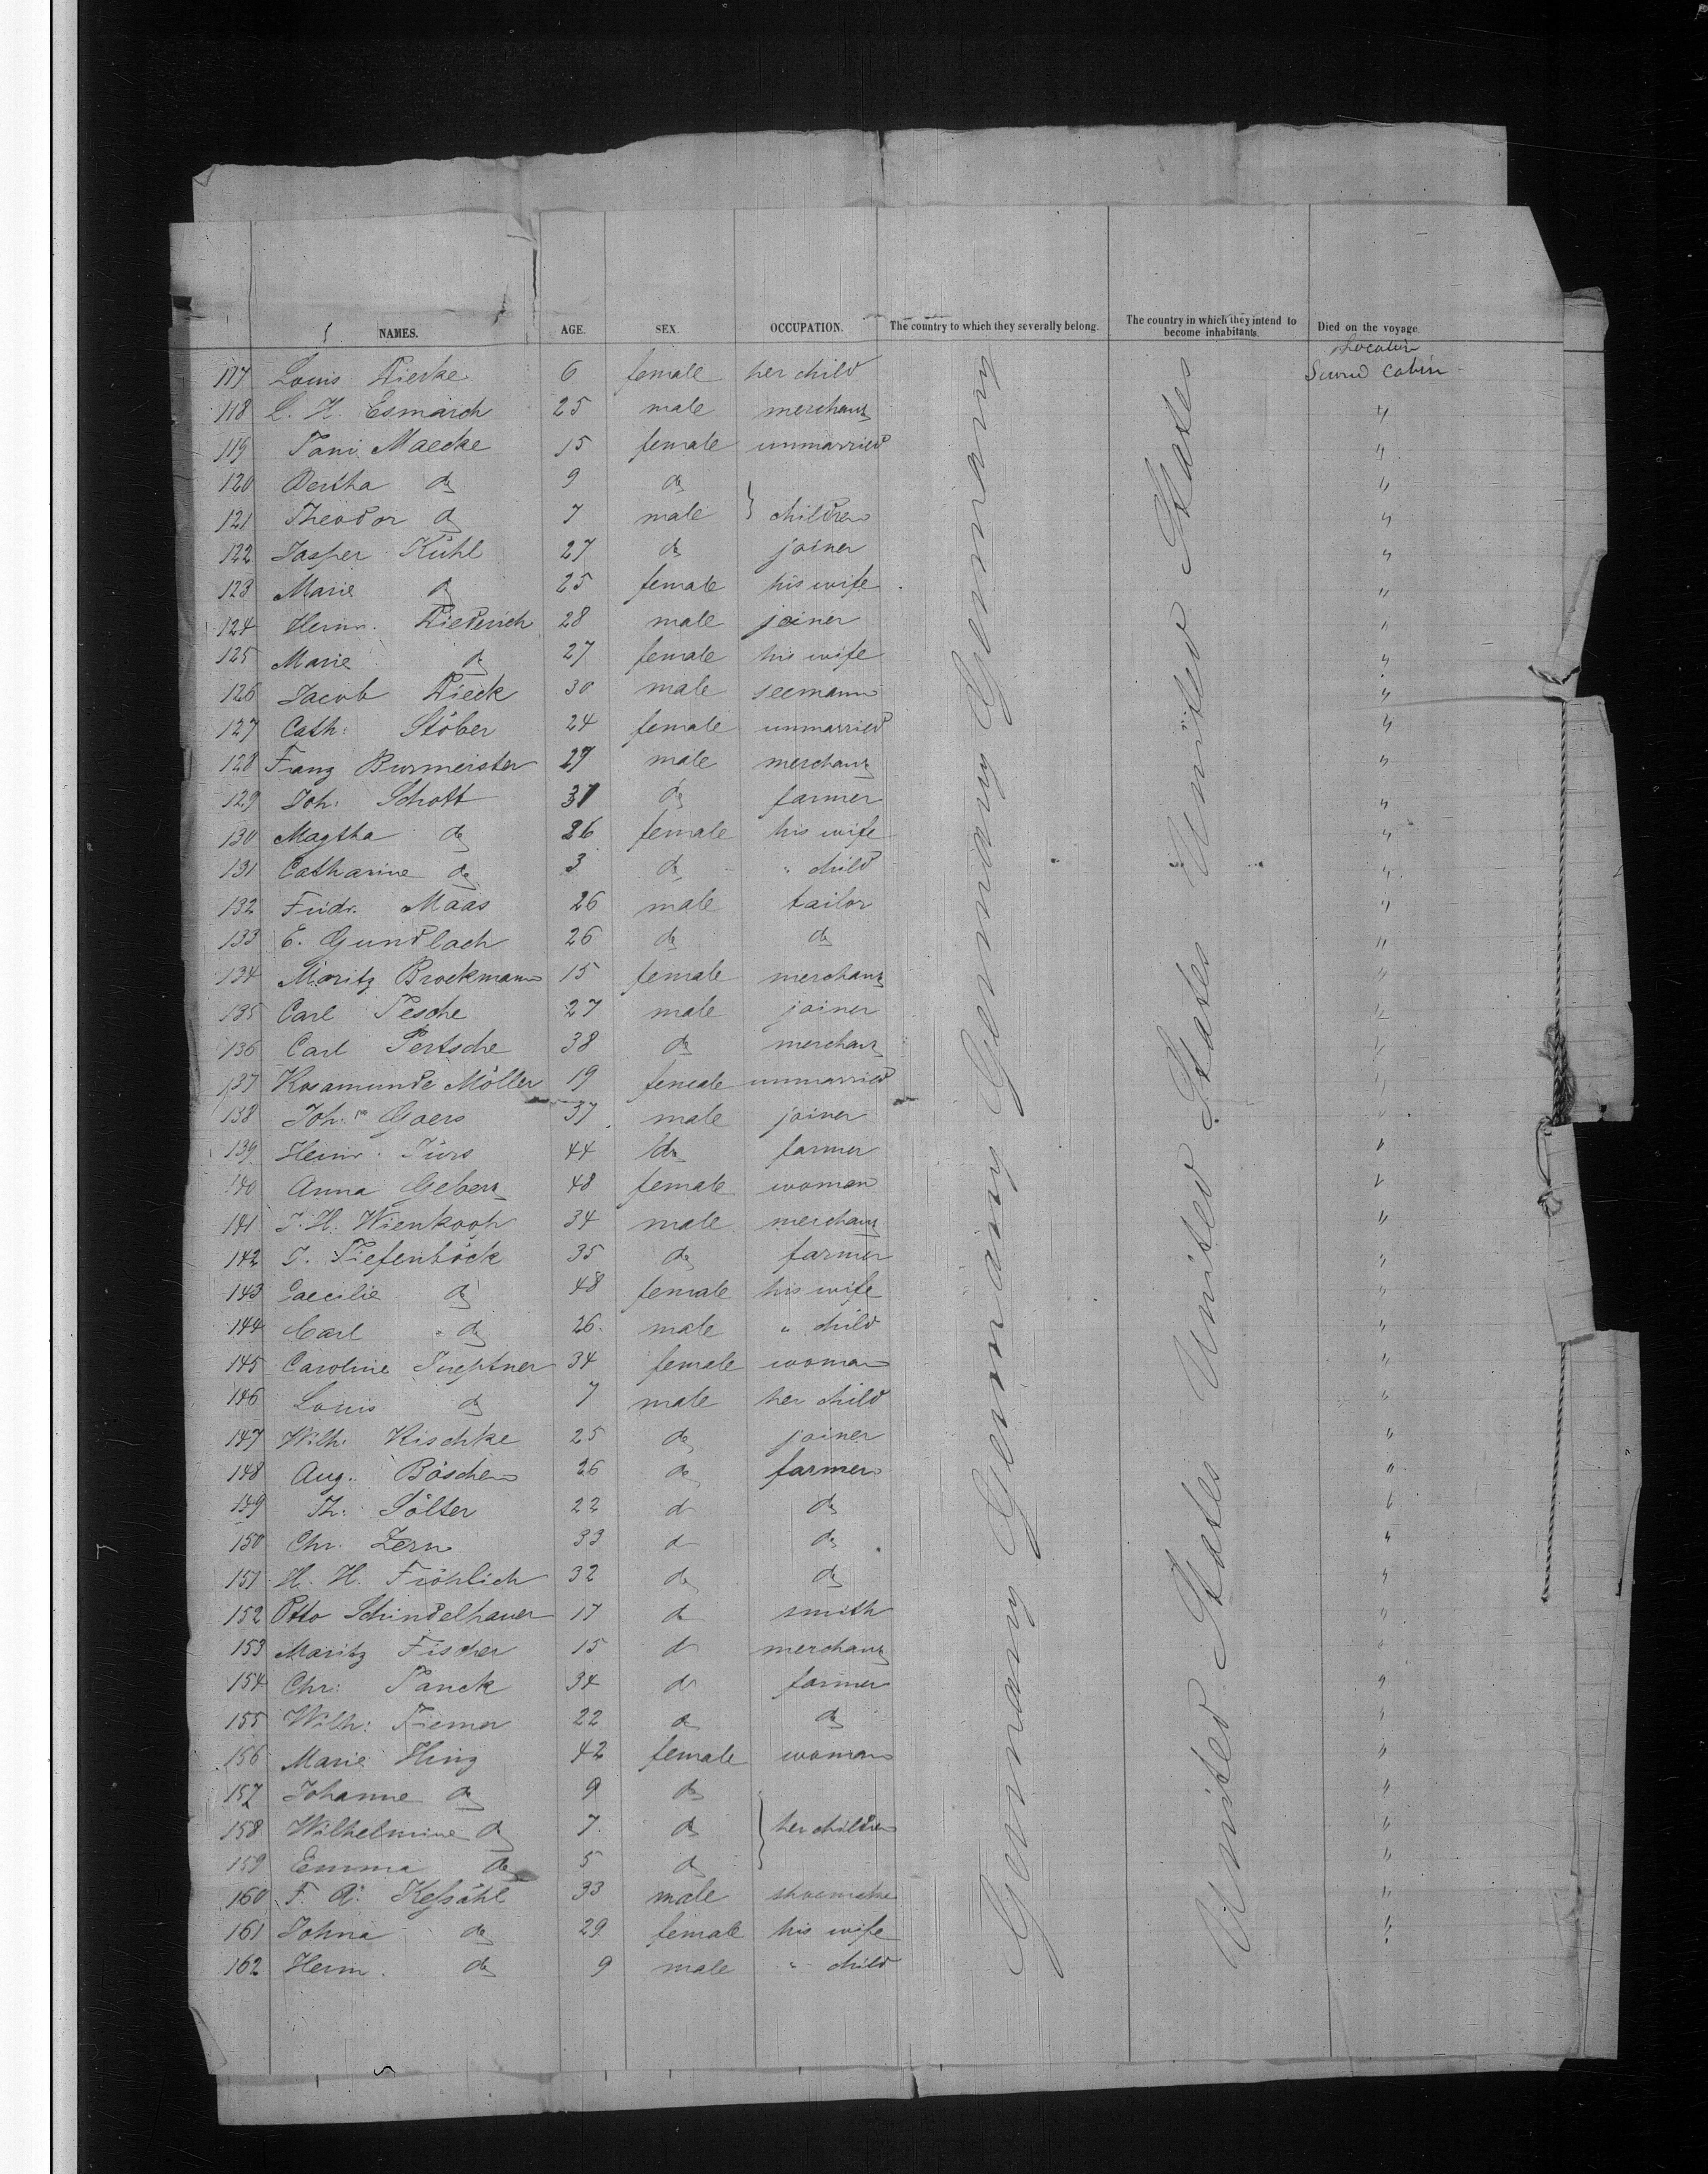 NAMES. AGE. SEX. OCCUPATION. The country to which they severally belong. The country in which they intend to become inhabitants. Died on the voyage.
Location
117 Louis Dierke 6 female her child Second Cabin
118 L. H. Esmarch 25 male merchant "
119 Toni Maecke 15 female unmarried "
120 Bertha do 9 do "
121 Theodor do 7 male } children "
122 Jasper Kühl 27 do joiner "
123 Marie do 25 female his wife "
124 Heinr. Diederich 28 male joiner "
125 Marie do 27 female his wife "
126 Jacob Dieck 30 male seemann "
127 Cath: Stöber 24 female unmarried "
128 Franz Burmeister 27 male merchant "
129 Joh: Schott 31 do farmer "
130 Magtha do 26 female his wife "
131 Catharine do 3 do " child "
132 Fridr. Maas 26 male tailor "
133 E. Gundlach 26 do do "
134 Moritz Brockmann 15 female merchant "
135 Carl Pesche 27 male joiner "
136 Carl Pertsche 38 do merchant "
137 Rosamunde Möller 19 female unmarried "
138 Joh: Goers 37 male joiner "
139 Heinr. Jürs 44 do farmer "
140 Anna Gebert 48 female woman "
141 J. H. Wienkoop 34 male merchant "
142 J. Tiefenböck 35 do farmer "
143 Caecilie do 48 female his wife "
144 Carl do 26 male " child "
145 Caroline 34 female woman "
146 Louis do 7 male her child "
147 Wilh. Kischke 25 do joiner "
148 Aug. Böschen 26 do farmer "
149 Th. Sölter 22 do do "
150 Chr. Zern 33 do do "
151 H. H. Fröhlich 32 do do "
152 Otto Schindelhauer 17 do smith "
153 Moritz Fischer 15 do merchant "
154 Chr: Panck 34 do farmer "
155 Wilh: Tiemer 22 do do "
156 Marie Hinz 42 female woman "
157 Johanne do 9 do "
158 Wilhelmine do 7 do } her children "
159 Emma do 5 do "
160 F. A. Keßsähl 33 male shoemaker "
161 Johna do 29 female his wife "
162 Herm. do 9 male " child
Germany Germany Germany Germany
United States United States United States